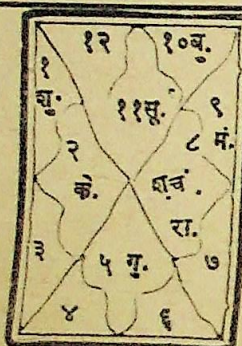 १२ १०बु.
१
शु. ११सू. ९
२ ८ मं.
के. श.चं.
रा.
३ ५ गु. ७
४ ६